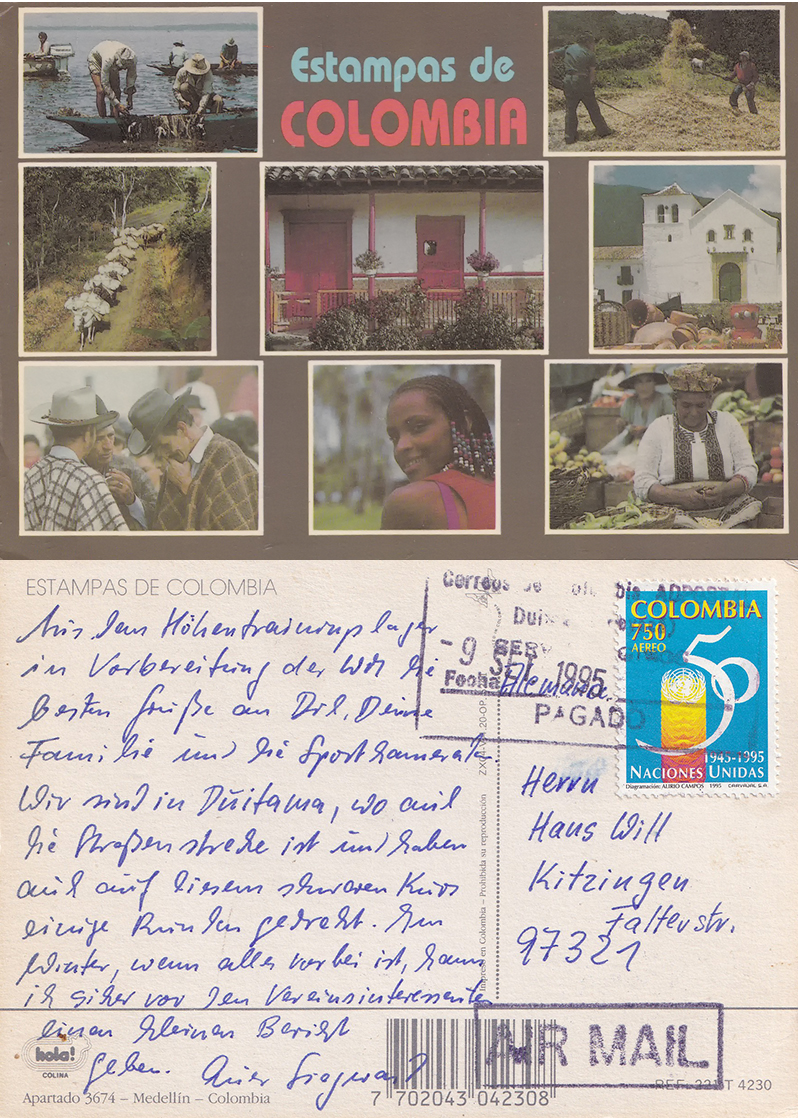 Estampas de
COLOMBIA
ESTAMPAS DE COLOMBIA
Aus dem Höhentrainingslager
in Vorbereitung der WM die
besten Grüße an Dil, Deine
Familie und die Sportkameraden
Wir sind in Duitama, wo auch
die Straßenstrecke ist und haben
auch auf diesem schweren Kurs
einige Runden gedreht. Im
Winter, wenn alles vorbei ist, kann
ich sicher vor den Vereinsinteressenten
einen kleinen Bericht
geben. Euer Siegward
Correos de Colombia
Duitama
- 9 SET. 1995
Fecha
PAGADO
Alemania
COLOMBIA
750
AEREO
50
1945-1995
NACIONES UNIDAS
Diagramación: AURIO CAMPOS 1995 CARVAJAL S.A.
Herrn
Hans Will
Kitzingen
Falterstr.
97321
Impreso en Colombia – Prohibida su reproducción
AIR MAIL
hola!
COLINA
Apartado 3674 – Medellín – Colombia
7 702043 042308
REF: 221-T 4230